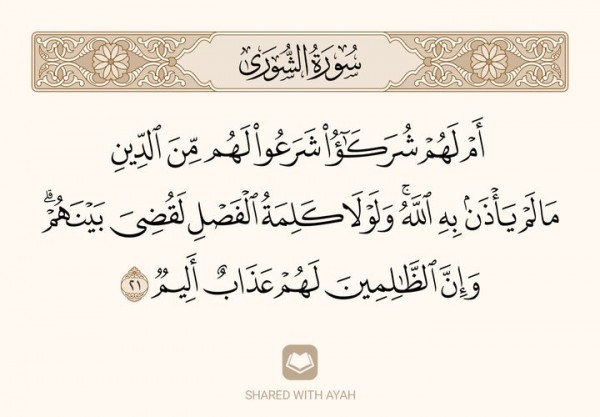 سُورَةُ الشُّورَى
أَمْ لَهُمْ شُرَكَـٰٓؤُا۟ شَرَعُوا۟ لَهُم مِّنَ ٱلدِّينِ
مَا لَمْ يَأْذَنۢ بِهِ ٱللَّهُ ۚ وَلَوْلَا كَلِمَةُ ٱلْفَصْلِ لَقُضِىَ بَيْنَهُمْ ۗ
وَإِنَّ ٱلظَّـٰلِمِينَ لَهُمْ عَذَابٌ أَلِيمٌ ٢١
SHARED WITH AYAH